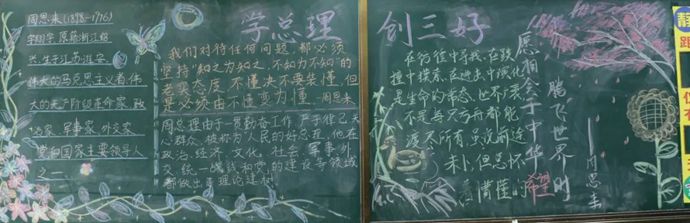 周恩来(1898-1976)
字翔宇 原籍浙江绍
兴,生于江苏淮安
伟大的马克思主义者,伟
大的无产阶级革命家,政
治家,军事家,外交家
党和国家主要领导人
之一
学总理
我们对待任何问题,都必须
坚持“知之为知之,不知为不知”的
老实态度,不懂决不要装懂,但
是必须由不懂变为懂 —周恩来
周总理由于一贯勤奋工作,严于律己,关
心群众,被称为人民的好总理,他在
政治、经济、文化、社会、军事、外
交、统一战线和党的建设等领域
都做出了理论建树
创三好
在彷徨中寻找,在跌
撞中摸索,在进击中演化
是生命的常态,也不谈
不是每只方舟都能
渡尽所有,虽说前途
未卜,但总怀
着懵懂的希望
愿相会于中华
腾飞世界时
——周恩来